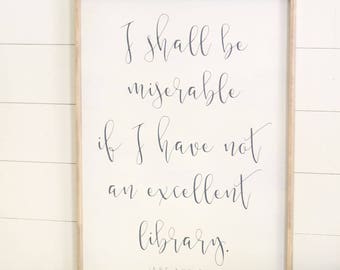 I shall be
miserable
if I have not
an excellent
library.